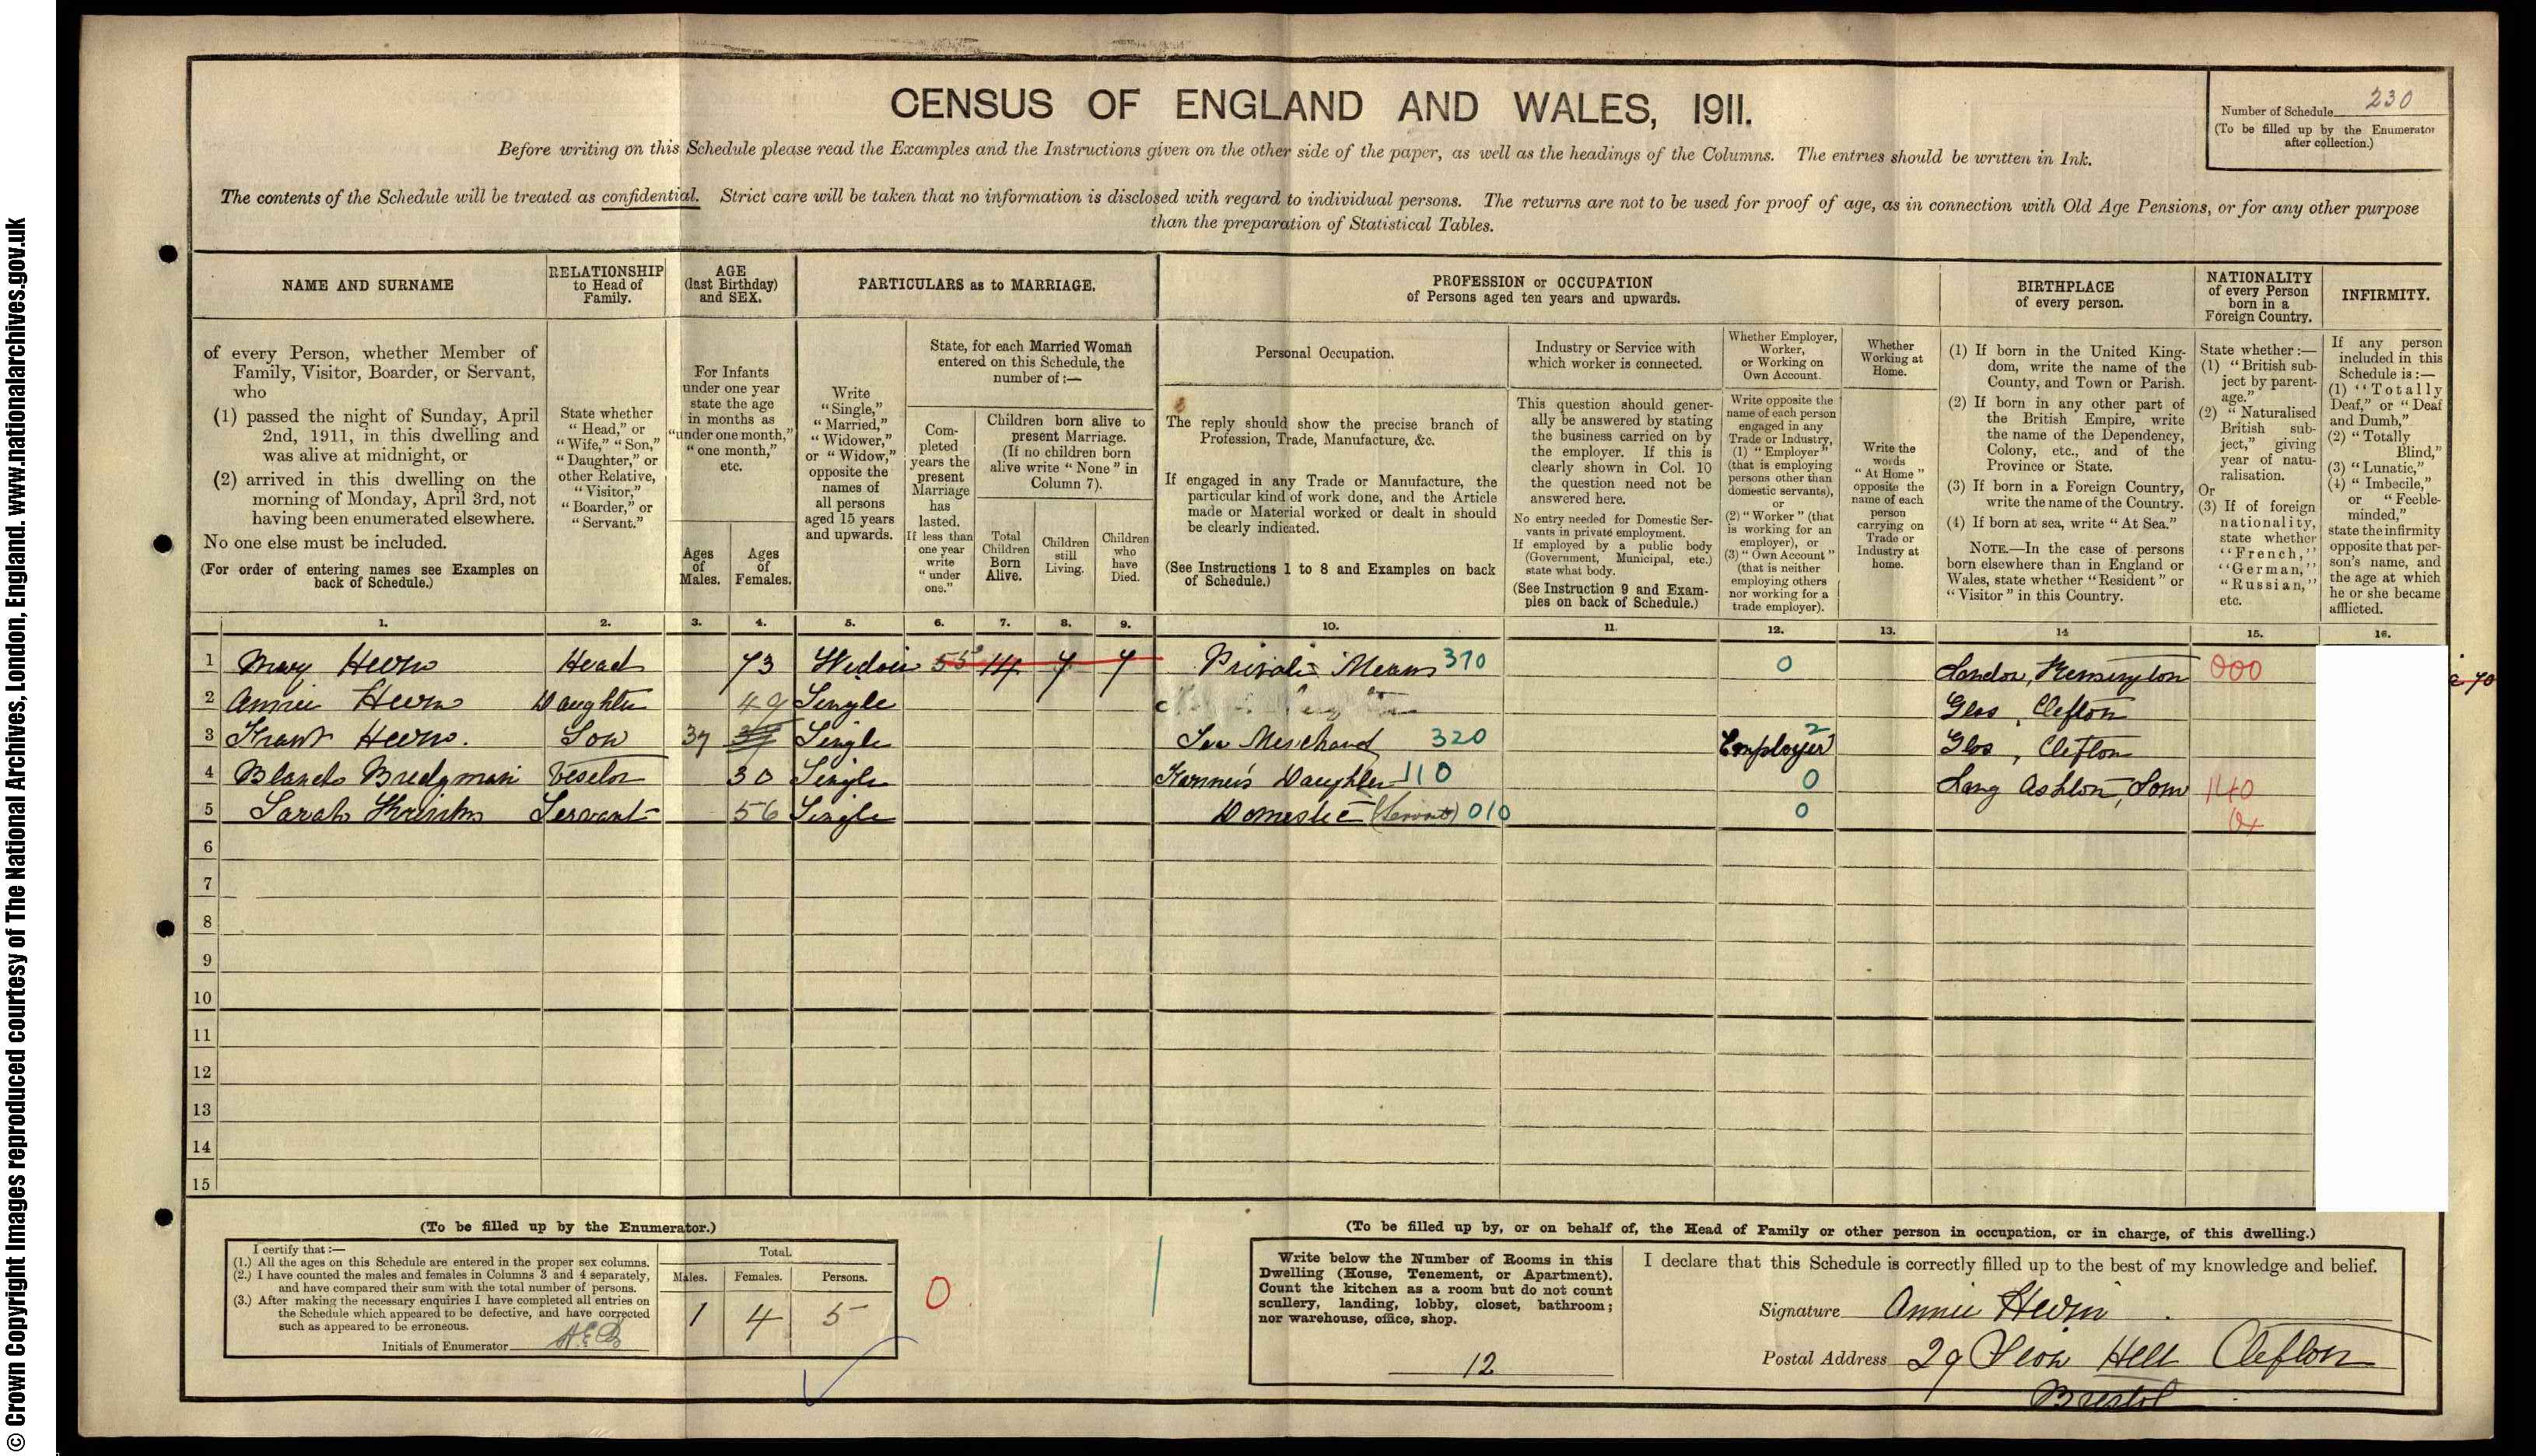 © Crown Copyright Images reproduced courtesy of The National Archives, London, England. www.nationalarchives.gov.uk
CENSUS OF ENGLAND AND WALES, 1911.
Number of Schedule 230
(To be filled up by the Enumerator after collection.)
Before writing on this Schedule please read the Examples and the Instructions given on the other side of the paper, as well as the headings of the Columns. The entries should be written in Ink.
The contents of the Schedule will be treated as confidential. Strict care will be taken that no information is disclosed with regard to individual persons. The returns are not to be used for proof of age, as in connection with Old Age Pensions, or for any other purpose
than the preparation of Statistical Tables.
NAME AND SURNAME
of every Person, whether Member of
Family, Visitor, Boarder, or Servant,
who
(1) passed the night of Sunday, April
2nd, 1911, in this dwelling and
was alive at midnight, or
(2) arrived in this dwelling on the
morning of Monday, April 3rd, not
having been enumerated elsewhere.
No one else must be included.
(For order of entering names see Examples on
back of Schedule.)
RELATIONSHIP
to Head of
Family.
State whether
"Head," or
"Wife," "Son,"
"Daughter," or
other Relative,
"Visitor,"
"Boarder," or
"Servant."
AGE
(last Birthday)
and SEX.
For Infants
under one year
state the age
in months as
"under one month,"
"one month,"
etc.
Ages
of
Males.
Ages
of
Females.
PARTICULARS as to MARRIAGE.
Write
"Single,"
"Married,"
"Widower,"
or "Widow,"
opposite the
names of
all persons
aged 15 years
and upwards.
State, for each Married Woman
entered on this Schedule, the
number of :—
Com-
pleted
years the
present
Marriage
has
lasted.
If less than
one year
write
"under
one."
Children born alive to
present Marriage.
(If no children born
alive write "None" in
Column 7).
Total
Children
Born
Alive.
Children
still
Living.
Children
who
have
Died.
PROFESSION or OCCUPATION
of Persons aged ten years and upwards.
Personal Occupation.
The reply should show the precise branch of
Profession, Trade, Manufacture, &c.
If engaged in any Trade or Manufacture, the
particular kind of work done, and the Article
made or Material worked or dealt in should
be clearly indicated.
(See Instructions 1 to 8 and Examples on back
of Schedule.)
Industry or Service with
which worker is connected.
This question should gener-
ally be answered by stating
the business carried on by
the employer. If this is
clearly shown in Col. 10
the question need not be
answered here.
No entry needed for Domestic Ser-
vants in private employment.
If employed by a public body
(Government, Municipal, etc.)
state what body.
(See Instruction 9 and Exam-
ples on back of Schedule.)
Whether Employer,
Worker,
or Working on
Own Account.
Write opposite the
name of each person
engaged in any
Trade or Industry,
(1) "Employer"
(that is employing
persons other than
domestic servants),
or
(2) "Worker" (that
is working for an
employer), or
(3) "Own Account"
(that is neither
employing others
nor working for a
trade employer).
Whether
Working at
Home.
Write the
words
"At Home"
opposite the
name of each
person
carrying on
Trade or
Industry at
home.
BIRTHPLACE
of every person.
(1) If born in the United King-
dom, write the name of the
County, and Town or Parish.
(2) If born in any other part of
the British Empire, write
the name of the Dependency,
Colony, etc., and of the
Province or State.
(3) If born in a Foreign Country,
write the name of the Country.
(4) If born at sea, write "At Sea."
NOTE.—In the case of persons
born elsewhere than in England or
Wales, state whether "Resident" or
"Visitor" in this Country.
NATIONALITY
of every Person
born in a
Foreign Country.
State whether :—
(1) "British sub-
ject by parent-
age."
(2) "Naturalised
British sub-
ject," giving
year of natu-
ralisation.
Or
(3) If of foreign
nationality,
state whether
"French,"
"German,"
"Russian,"
etc.
INFIRMITY.
If any person
included in this
Schedule is :—
(1) "Totally
Deaf," or "Deaf
and Dumb,"
(2) "Totally
Blind,"
(3) "Lunatic,"
(4) "Imbecile,"
or "Feeble-
minded,"
state the infirmity
opposite that per-
son's name, and
the age at which
he or she became
afflicted.
1. 2. 3. 4. 5. 6. 7. 8. 9. 10. 11. 12. 13. 14 15. 16.
1 Mary Head 73 Widow 55 14 7 7 Private Means 370 0 London, Kensington 000
2 Annie Daughter 49 Single Glos, Clifton
3 Son 37 Single Merchant 320 Employer 2 Glos, Clifton
4 Blanch Bridgman Visitor 30 Single Farmer's Daughter 110 0 Long Ashton, Som 140
5 Sarah Servant 56 Single Domestic (Servant) 010 0
6
7
8
9
10
11
12
13
14
15
(To be filled up by the Enumerator.)
I certify that :—
(1.) All the ages on this Schedule are entered in the proper sex columns.
(2.) I have counted the males and females in Columns 3 and 4 separately,
and have compared their sum with the total number of persons.
(3.) After making the necessary enquiries I have completed all entries on
the Schedule which appeared to be defective, and have corrected
such as appeared to be erroneous.
Initials of Enumerator A.E.B
Total.
Males. Females. Persons.
1 4 5
0
(To be filled up by, or on behalf of, the Head of Family or other person in occupation, or in charge, of this dwelling.)
Write below the Number of Rooms in this
Dwelling (House, Tenement, or Apartment).
Count the kitchen as a room but do not count
scullery, landing, lobby, closet, bathroom;
nor warehouse, office, shop.
12
I declare that this Schedule is correctly filled up to the best of my knowledge and belief.
Signature Annie
Postal Address 29 Hill Clifton
Bristol